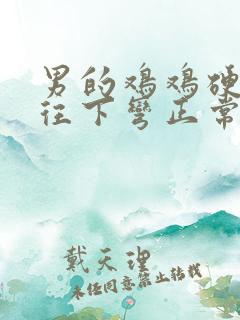 男的鸡鸡硬
往下弯正常
戴天理
未经同意禁止转载